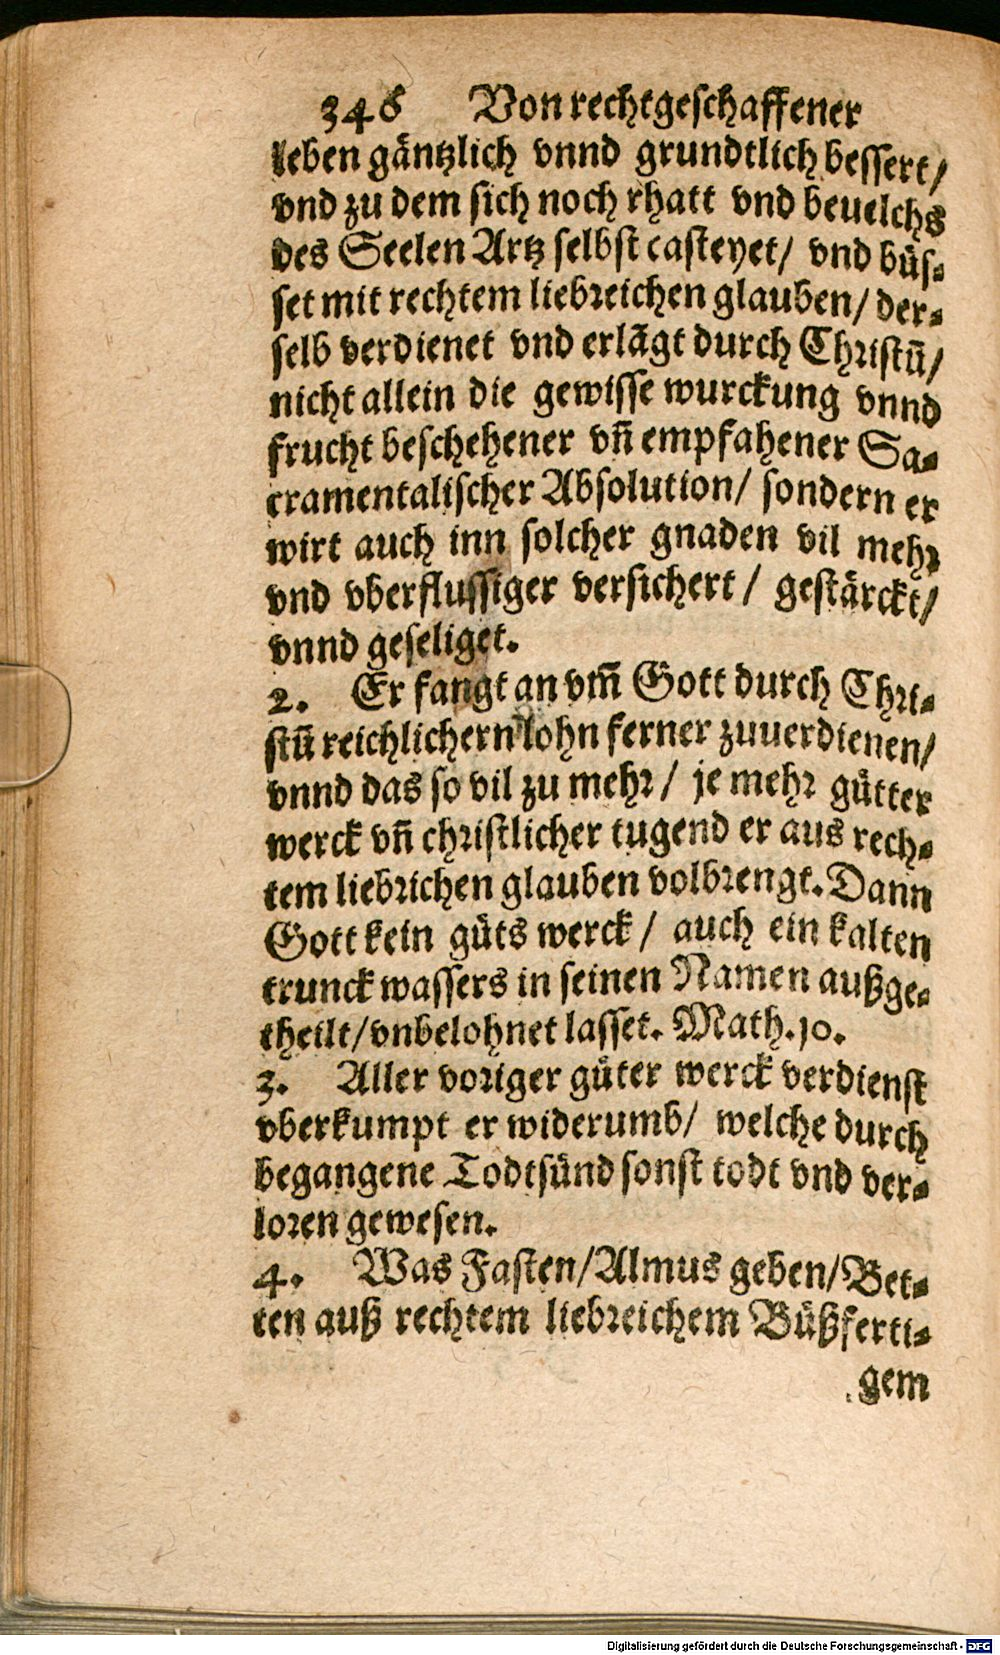 346 Von rechtgeschaffener
leben gäntzlich vnnd grundtlich bessert/
vnd zu dem sich noch rhatt vnd beuelchs
des Seelen Artz selbst casteyet/ vnd büs-
set mit rechtem liebreichen glauben/ der-
selb verdienet vnd erlāgt durch Christū/
nicht allein die gewisse wurckung vnnd
frucht beschehener vñ empfahener Sa-
cramentalischer Absolution/ sondern er
wirt auch inn solcher gnaden vil mehr
vnd vberflussiger versichert/ gestärckt/
vnnd geseliget.
2. Er fangt an vm̄ Gott durch Chri-
stū reichlichern lohn ferner zuuerdienen/
vnnd das so vil zu mehr/ je mehr gütter
werck vñ christlicher tugend er aus rech-
tem liebrichen glauben volbrengt. Dann
Gott kein güts werck/ auch ein kalten
trunck wassers in seinen Namen außge-
theilt/ vnbelohnet lasset. Math. 10.
3. Aller voriger güter werck verdienst
vberkumpt er widerumb/ welche durch
begangene Todtsünd sonst todt vnd ver-
loren gewesen.
4. Was Fasten/ Almus geben/ Bet-
ten auß rechtem liebreichem Büßferti-
gem
Digitalisierung gefördert durch die Deutsche Forschungsgemeinschaft - DFG